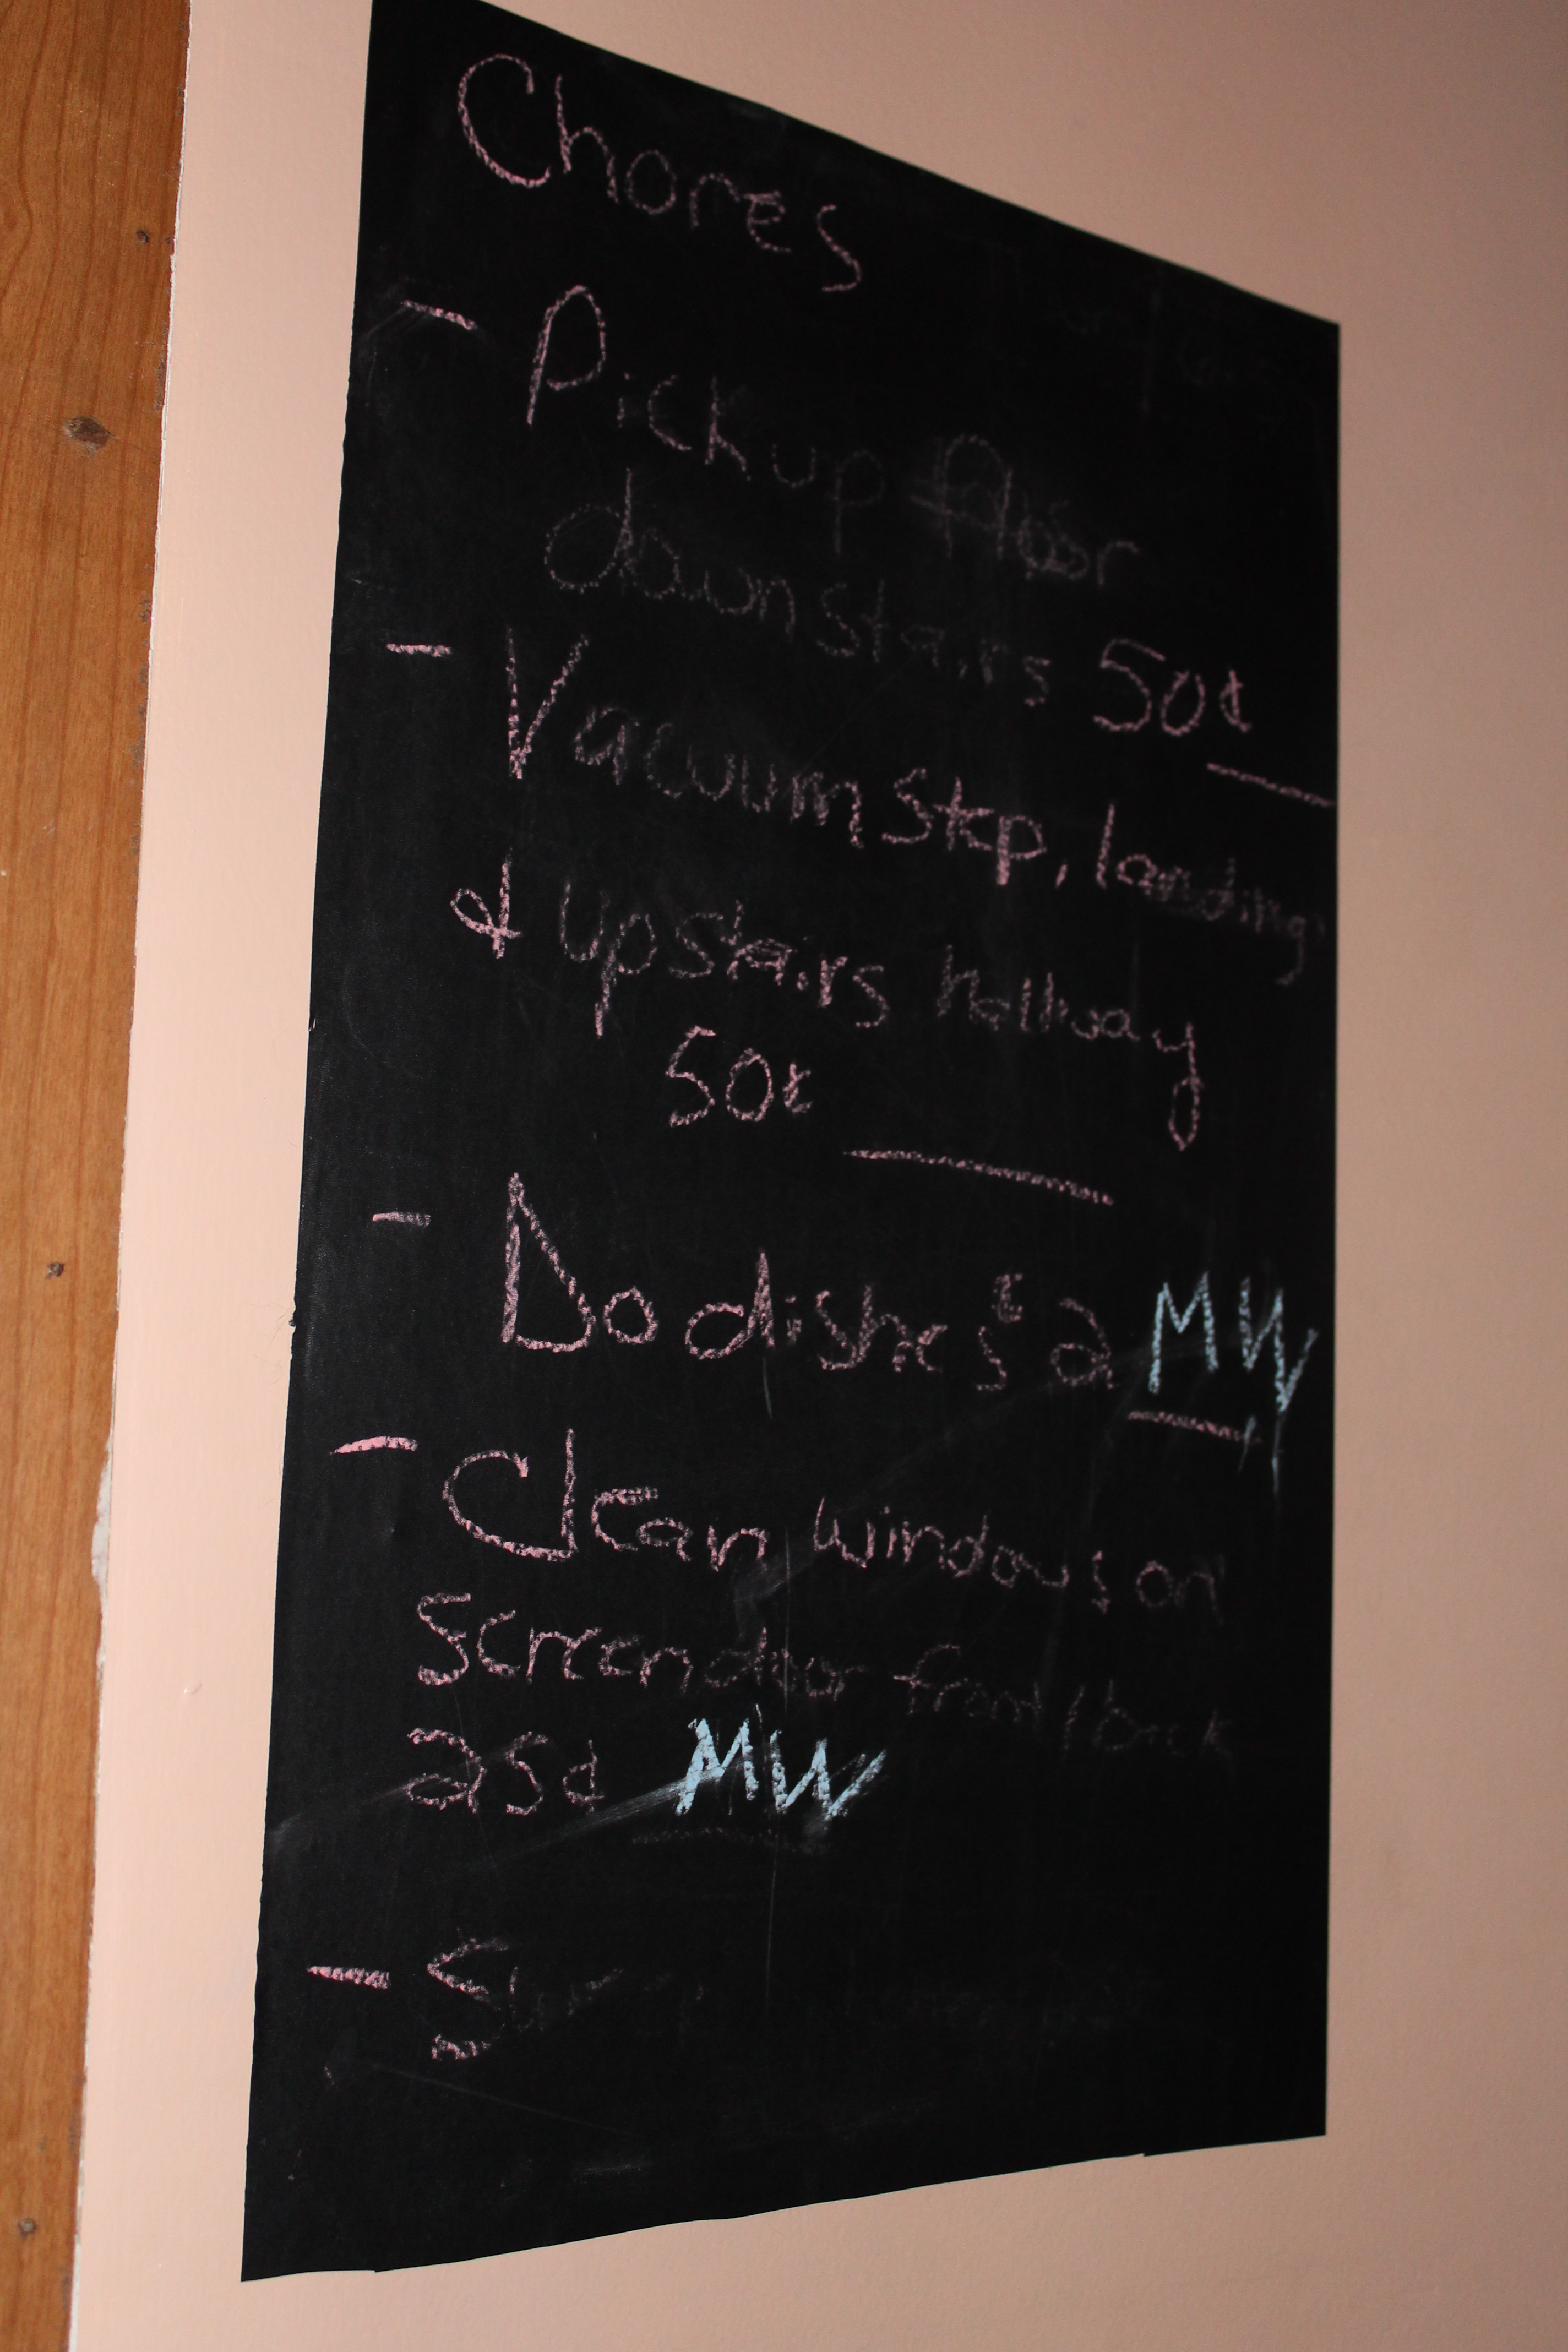 Chores
- Pick up floor
downstairs 50¢
- Vacuum step, landing,
& upstairs hallway
50¢
- Do dishes MW
- Clean windows on
screen door front/back
25¢ MW
-